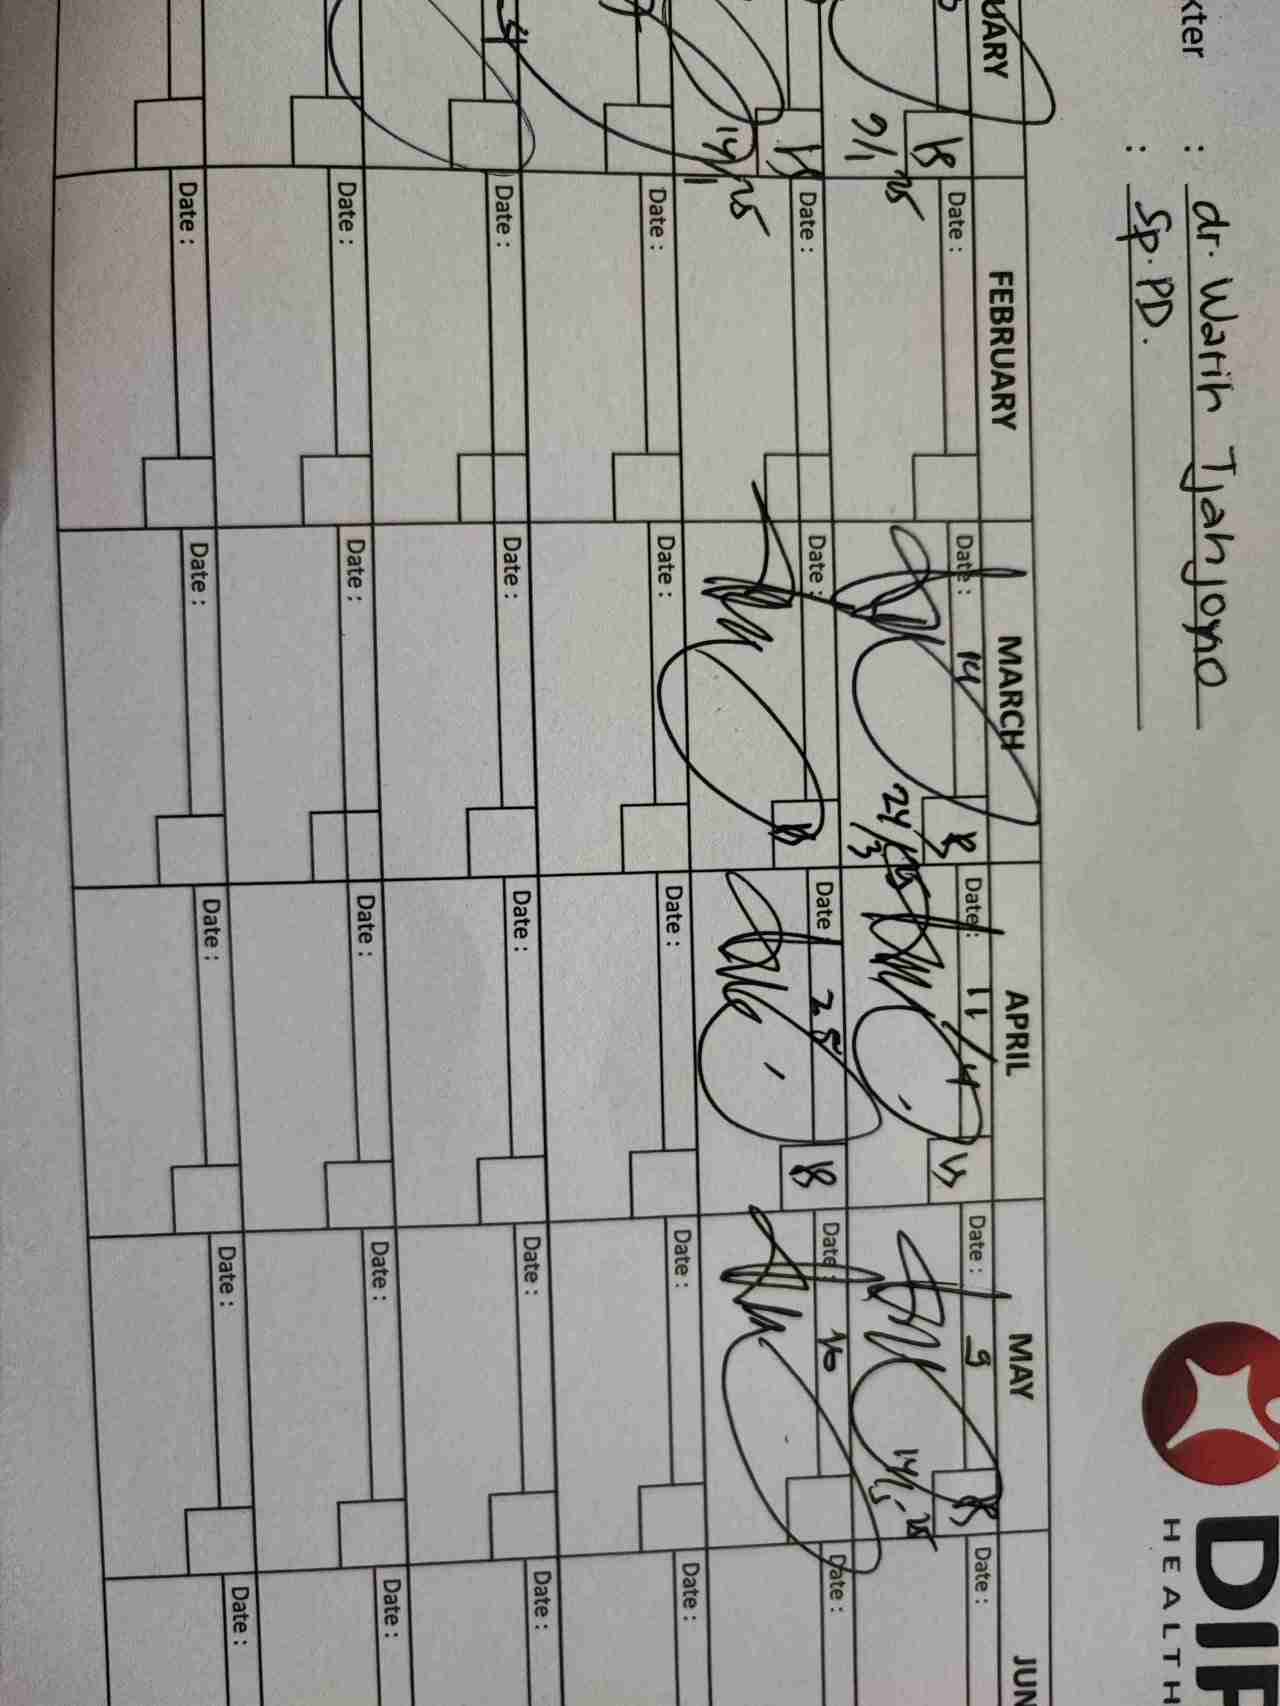 kter : dr. Warih Tjahjono
: Sp. PD.
DIF
HEALTH
UARY FEBRUARY MARCH APRIL MAY JUN
Date : Date : 14 Date : 11/4 Date : 9 Date :
9/1 25 24/3 14/5-25
Date : Date : Date 25 Date : 16 Date :
14/1 25
Date : Date : Date : Date : Date :
Date : Date : Date : Date : Date :
Date : Date : Date : Date : Date :
Date : Date : Date : Date : Date :